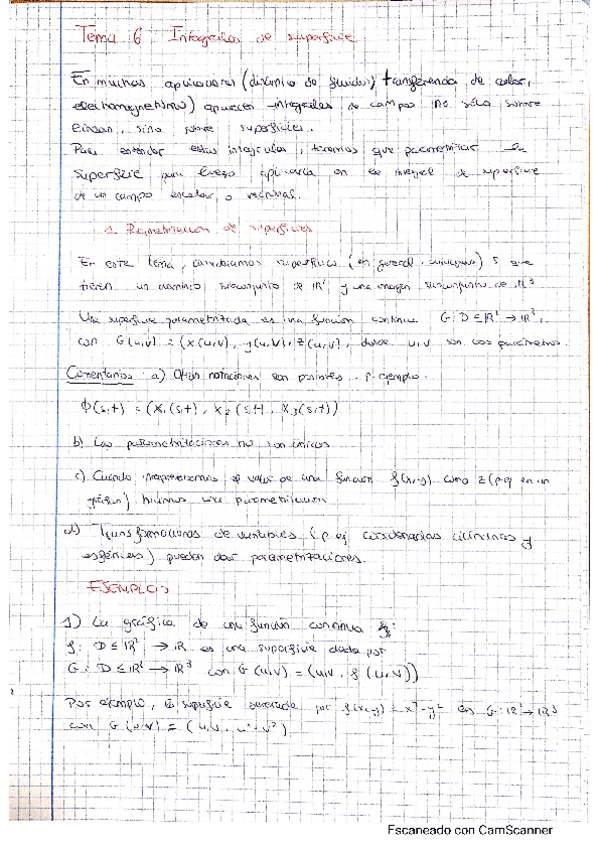 Tema 6: Integrales de superficie
En muchas aplicaciones (dinámica de fluidos, transferencia de calor,
electromagnetismo) aparecen integrales de campos no sólo sobre
, sino sobre superficies.
Para entender estas integrales, tenemos que parametrizar la
superficie para luego aplicarla en la integral de superficie
de un campo escalar o vectorial.
1. Parametrización de superficies
En este tema, consideramos superficies (en general, ) S que
tienen un dominio subconjunto de ℝ² y una imagen subconjunto de ℝ³
Una superficie parametrizada es una función continua G: D ⊆ ℝ² → ℝ³,
con G(u,v) = (x(u,v), y(u,v), z(u,v)), donde u,v son los parámetros.
Comentarios: a) Otras notaciones son posibles. p. ejemplo.
Φ(s,t) = (x₁(s,t), x₂(s,t), x₃(s,t))
b) Las parametrizaciones no son únicas
c) Cuando representamos el valor de una función f(x,y) como z (p.ej en un
gráfico) hacemos una parametrización
d) Transformaciones de variables (p.ej coordenadas cilíndricas y
esféricas) pueden dar parametrizaciones.
EJEMPLOS
1) La gráfica de una función continua f:
f: D ⊆ ℝ² → ℝ es una superficie dada por
G: D ⊆ ℝ² → ℝ³ con G(u,v) = (u,v, f(u,v))
Por ejemplo, la superficie generada por f(x,y) = x²-y² es G: ℝ² → ℝ³
con G(u,v) = (u,v, u²-v²)
Escaneado con CamScanner